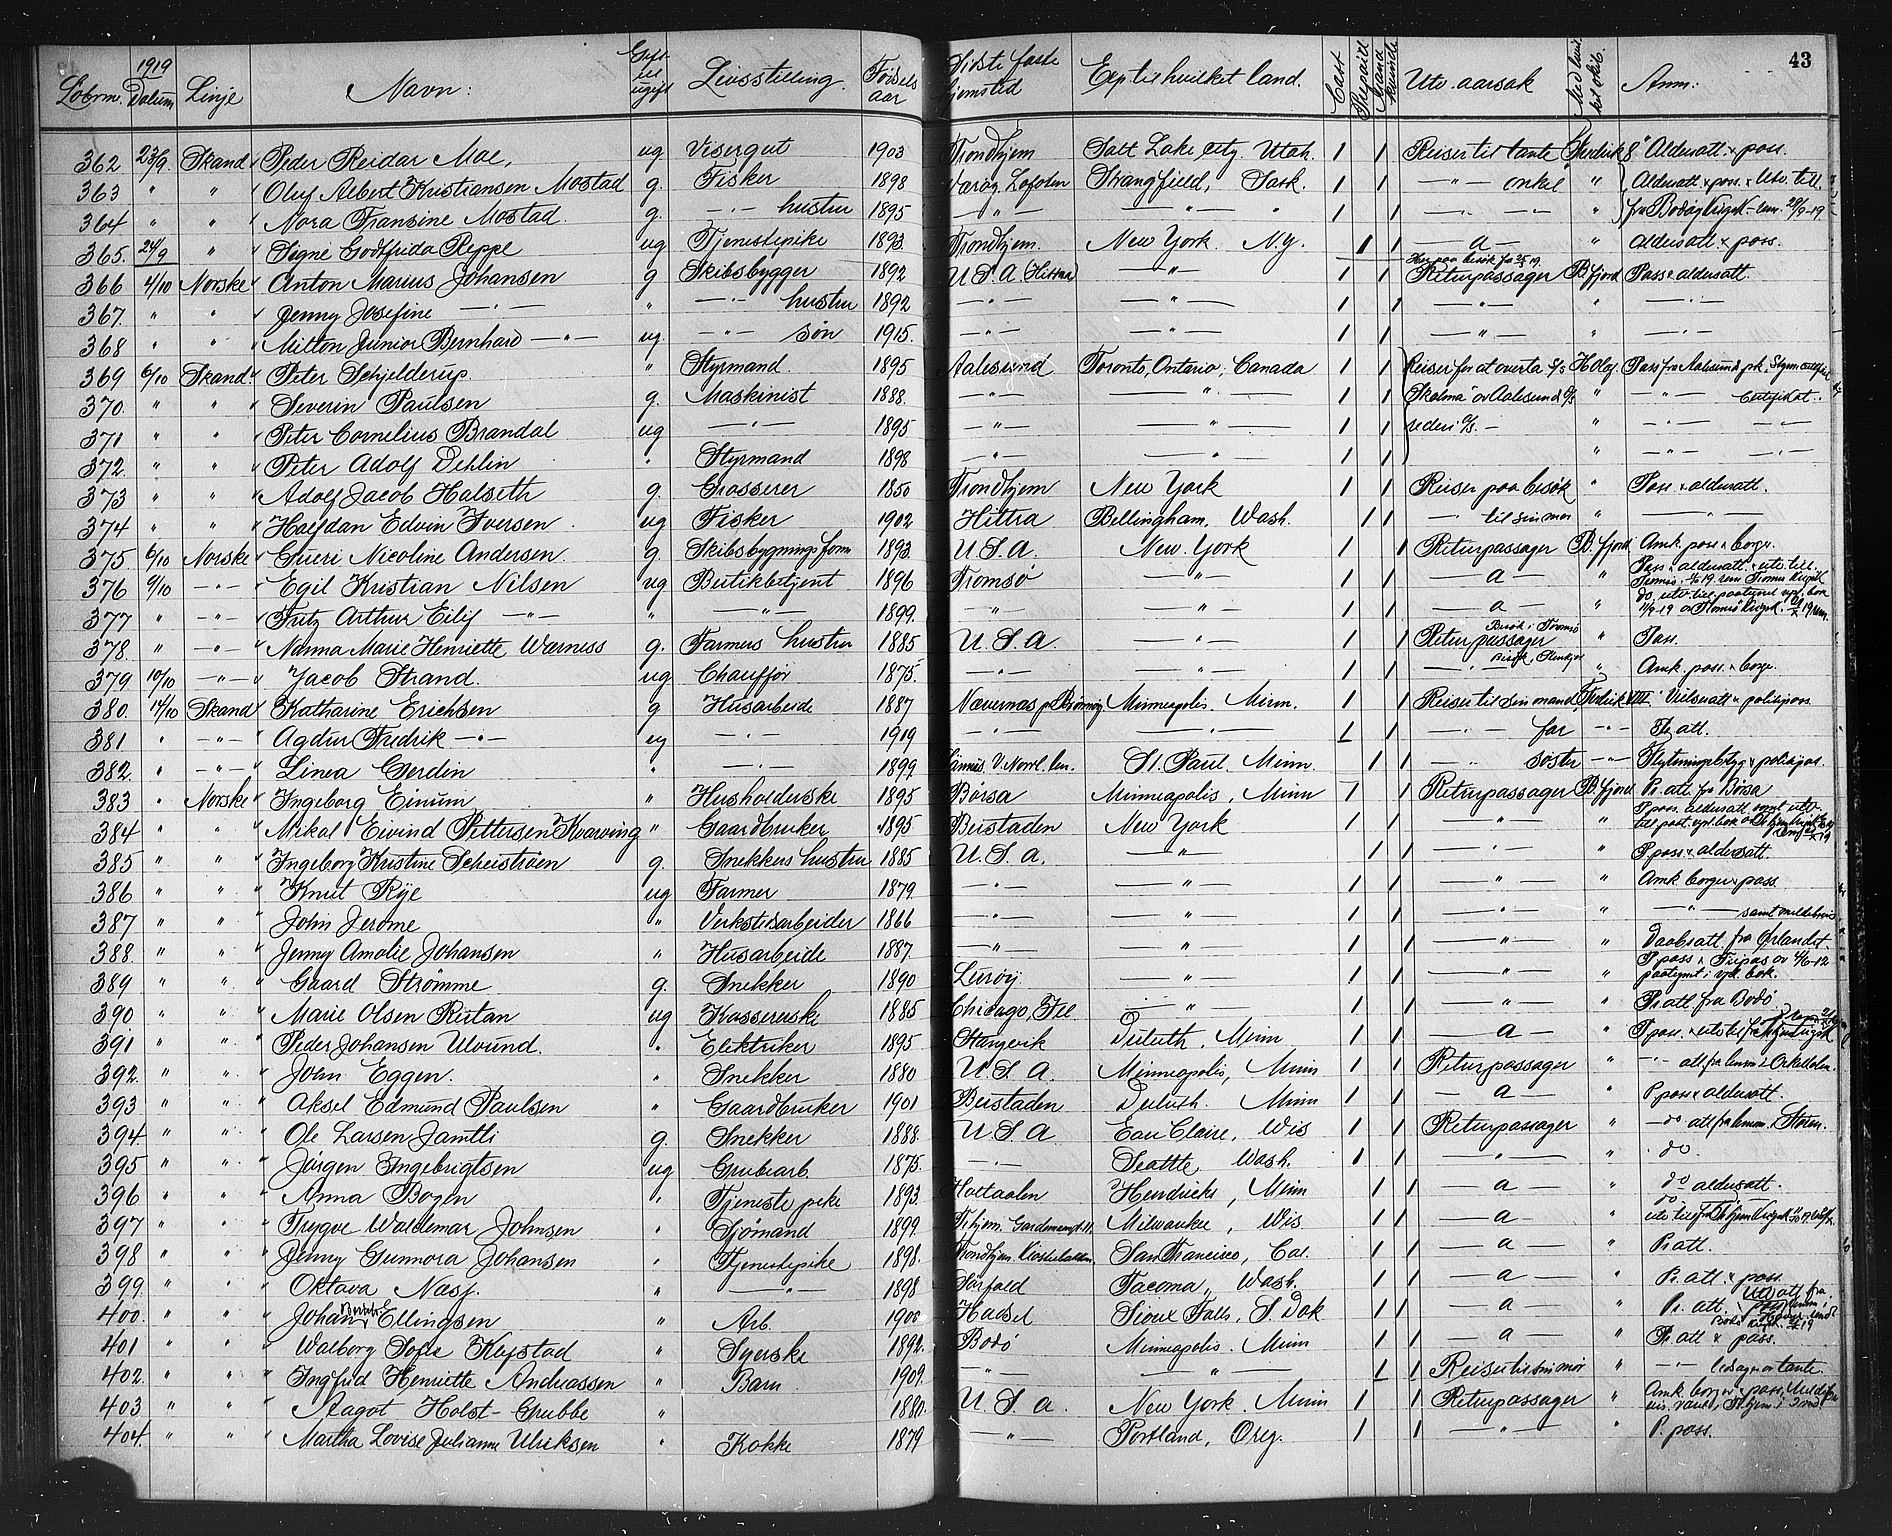 43
1919
Löbnm. Datum Linje Navn: Gift el. ugift Livsstilling Fødsels aar Sidste faste hjemsted Exp. til hvilket land. Cast Prepaid Utv. aarsak Anm:
362 23/9 Skand " Peder Reidar Moe, ug Visergut 1903 Trondhjem Salt Lake City Utah. 1 1 Reiser til tante Fredrik 8" Aldersatt. & pass.
363 " " " Oluf Albert Kristiansen Mostad g. Fisker 1898 Værøy Lofoten Sask. 1 1 — " — onkel " Aldersatt. & pass. & Utv. till.
364 " " " Nora Fransine Mostad. g. — " — hustru 1895 — " — — " — " 1 1 — " — " fra Bodø 29/9-19
365. 24/9 " " Signe Godtfrida Reppe ug Tjenestepike 1893. Trondhjem. New York. N.Y. 1 1 — a — " Aldersatt & pass.
366 4/10 Norske " Anton Marius Johansen g Skibsbygger 1892 U.S.A (Hitra) — " — 1 1 Returpassager B.fjord Pass & aldersatt
367. " " " Jenny Josefine — " — " — " — hustru 1892 — " — — " — 1 1 — " — " — " —
368 " " " Milton Junior Bernhard — " — ug. — " — søn 1915. — " — — " — 1 1 — " — " — " —
369 6/10 Skand. " Peter Schjelderup. " Styrmand. 1895 Aalesund Toronto, Ontario, Canada 1 1 Reiser for at overta S/S H.Olaf. Pass fra Aalesund
370. " " " Severin Paulsen g. Maskinist 1888. — " — — " — 1 1 "Skalma" av Aalesund " — " — Certifikat.
371 " " " Peter Cornelius Brandal ug — " — 1895 — " — — " — 1 1 rederi — " — " — — " —
372. " " " Peter Adolf Dehlin " Styrmand 1898 — " — — " — 1 1 " — " — — " —
373 " " " Adolf Jacob Halseth g. Grosserer 1850 Trondhjem New York 1 1 Reiser paa besøk " Pass. & aldersatt.
374 " " " Halfdan Edvin Iversen. ug Fisker 1902 Hittra Bellingham, Wash. 1 1 — " til sin mor " — " —
375. 6/10 Norske " Guri Nicoline Andersen g. Skibsbygnings form 1893. U.S.A. New York 1 1 Returpassager B.fjord Amk. pass & borger.
376 9/10 — " — " Egil Kristian Nilsen ug Butikbetjent 1896 Tromsø — " — 1 1 — a — " Pass. & aldersatt. & utv. till.
377 " — " — " Fritz Arthur Eilif — " — " — " — 1899. — " — — " — 1 1 — a — "
378. " — " — " Nanna Marie Henriette Wærness g. Farmers hustru 1885 U.S.A. — " — 1 1 Returpassager Besøk i Tromsø " Pass.
379 10/10 — " — " Jacob Strand. ug Chauffør 1875. — " — — " — 1 1 — " — Besøk, Stenkjær " Amk. pass. & borge.
380. 14/10 Skand " Katharine Erichsen g Husarbeide 1887 Minneapolis. Minn. 1 1 Reiser til sin mand Fredrik VIII. Vielsesatt & politipass
381 " — " — " Agdur Fredrik — " — ug — " — 1919 — " — — " — 1 1 — " — far — " — Fr. att.
382. " — " — " Linea Gerdin " — " — 1899 St. Paul. Minn. 1 1 — " — søster — " — Flytningsbetyg & polispas.
383 " Norske " Ingeborg Einum " Husholderske 1895 Børsa Minneapolis, Minn 1 1 Returpassager B.fjord Pr. att. fra Børsa
384 " " " Mikal Eivind Pettersen Kvarving " Gaardbruker 1895 Beistaden New York 1 1 — " — " P. pass. aldersatt. samt utv.
385 " " " Ingeborg Kristine Scheistrøen g. Snekkers hustru 1885 U.S.A. — " — 1 1 — " — " P. pass & aldersatt.
386 " " " Knut Rye ug Farmer 1879. — " — — " — 1 1 — " — " Amk. borger & pass.
387 " " " John Jerome " Verkstedsarbeider 1866 — " — — " — 1 1 — " — " — " — samt
388. " " " Jenny Amalie Johansen " Husarbeide 1887. — " — — " — 1 1 — " — " Daabsatt. fra Ørlandet.
389 " " " Gaard Strømme g. Snekker 1890 Lurøy — " — 1 1 — " — " P. pass
390 " " " Marie Olsen Ristan ug Kassererske 1885 Chicago, Ill — " — 1 1 — " — " Pr. att. fra Bodø
391 " " " Peder Johansen Ulvund. " Elektriker 1895 Stangvik Duluth, Minn 1 1 — a — " P. pass.
392. " " " Joan Eggen. " Snekker 1880 U.S.A. Minneapolis, Minn 1 1 Returpassager " — " — att. fra lensm. i Orkedalen.
393 " " " Aksel Edmund Paulsen " Gaardbruker 1901 Beistaden Duluth. Minn 1 1 — a — " P. pass & aldersatt.
394. " " " Ole Larsen Jamtli g. Snekker 1888. U.S.A Eau Claire, Wis 1 1 Returpassager " — do att fra lensm. i Støren.
395 " " " Jørgen Ingebrigtsen ug Grubearb. 1875. — " — Seattle Wash. 1 1 — " — " do.
396 " " " Anna Bogen " Tjeneste pike 1893. Holtaalen Hendricks, Minn 1 1 — a — " do aldersatt.
397 " " " Trygve Waldemar Johnsen " Sjømand 1899. Milwaukee, Wis 1 1 — a — "
398 " " " Jenny Gunnora Johansen " Tjenestepike 1898. Trondhjem San Francisco, Cal. 1 1 — a — " Pr. att.
399. " " " Oktava Næsj. " — " — 1898 Sørfold Tacoma, Wash. 1 1 — a — " Pr. att. & pass.
400. " " " Johan Ellingsen " Arb. 1900 Hadsel Sioux Falls, S. Dak 1 1 — a — " Pr. att.
401 " " " Walborg Sofie Kejstad " Syerske 1892. Bodø Minneapolis. Minn 1 1 — a — " Pr. att & pass.
402. " " " Ingfrid Henriette Andreassen " Barn 1909. — " — " 1 1 Reiser til sin mor " — " — ledsager av tante
403 " " " Aagot Holst-Grubbe " 1880. U.S.A. New York. Minn 1 1 Returpassager " Amk. borger & pass.
404. " " " Martha Lovise Julianne Ulriksen " Kokke 1879 — " — Portland, Oreg. 1 1 — " — " P. pass.